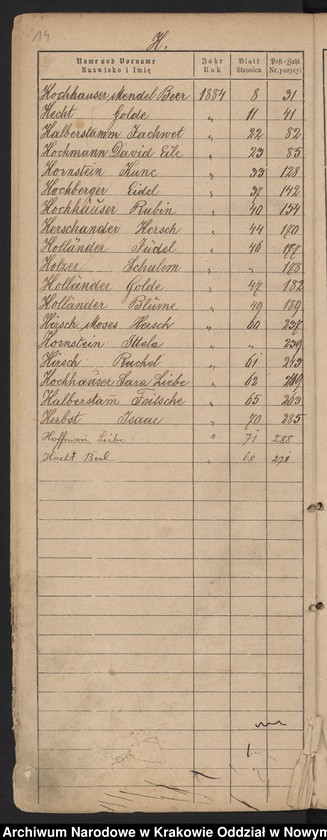 14
H.
Name und Vorname Jahr Blatt Post-Zahl
Nazwisko i Imię Rok Stronica Nr. pozycyi
Hochhauser Mendel Beer 1884 8 31
Hecht Golde " 11 41
Halberstamm Jachwet " 22 82
Hochmann David Eile " 23 85
Hornstein Kune " 33 128
Hochberger Eidel " 37 142
Hochhäuser Rubin " 40 154
Herschander Hersch " 44 170
Holländer Jüdel " 46 177
Holzer Schulem " " 178
Holländer Golde " 47 182
Holländer Blüme " 49 189
Hirsch Moses Hersch " 60 237
Hornstein Ittela " " 239
Hirsch Ruchel " 61 243
Hochhäuser Sara Liebe " 62
Halberstam̄ Feitsche " 65 263
Herbst Isaac " 70 285
Hoffmann Liebe " 71 288
Hecht Berl " 68 278
Archiwum Narodowe w Krakowie Oddział w Nowym